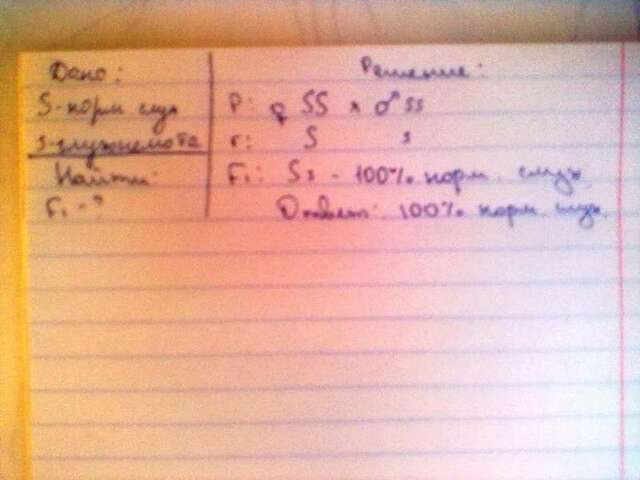 Дано:
S-норм слух
s-глухонемота
Найти:
F₁ - ?
Решение:
P: ♀ SS x ♂ ss
г: S s
F₁: Ss - 100% норм. слух.
Ответ: 100% норм. слух.